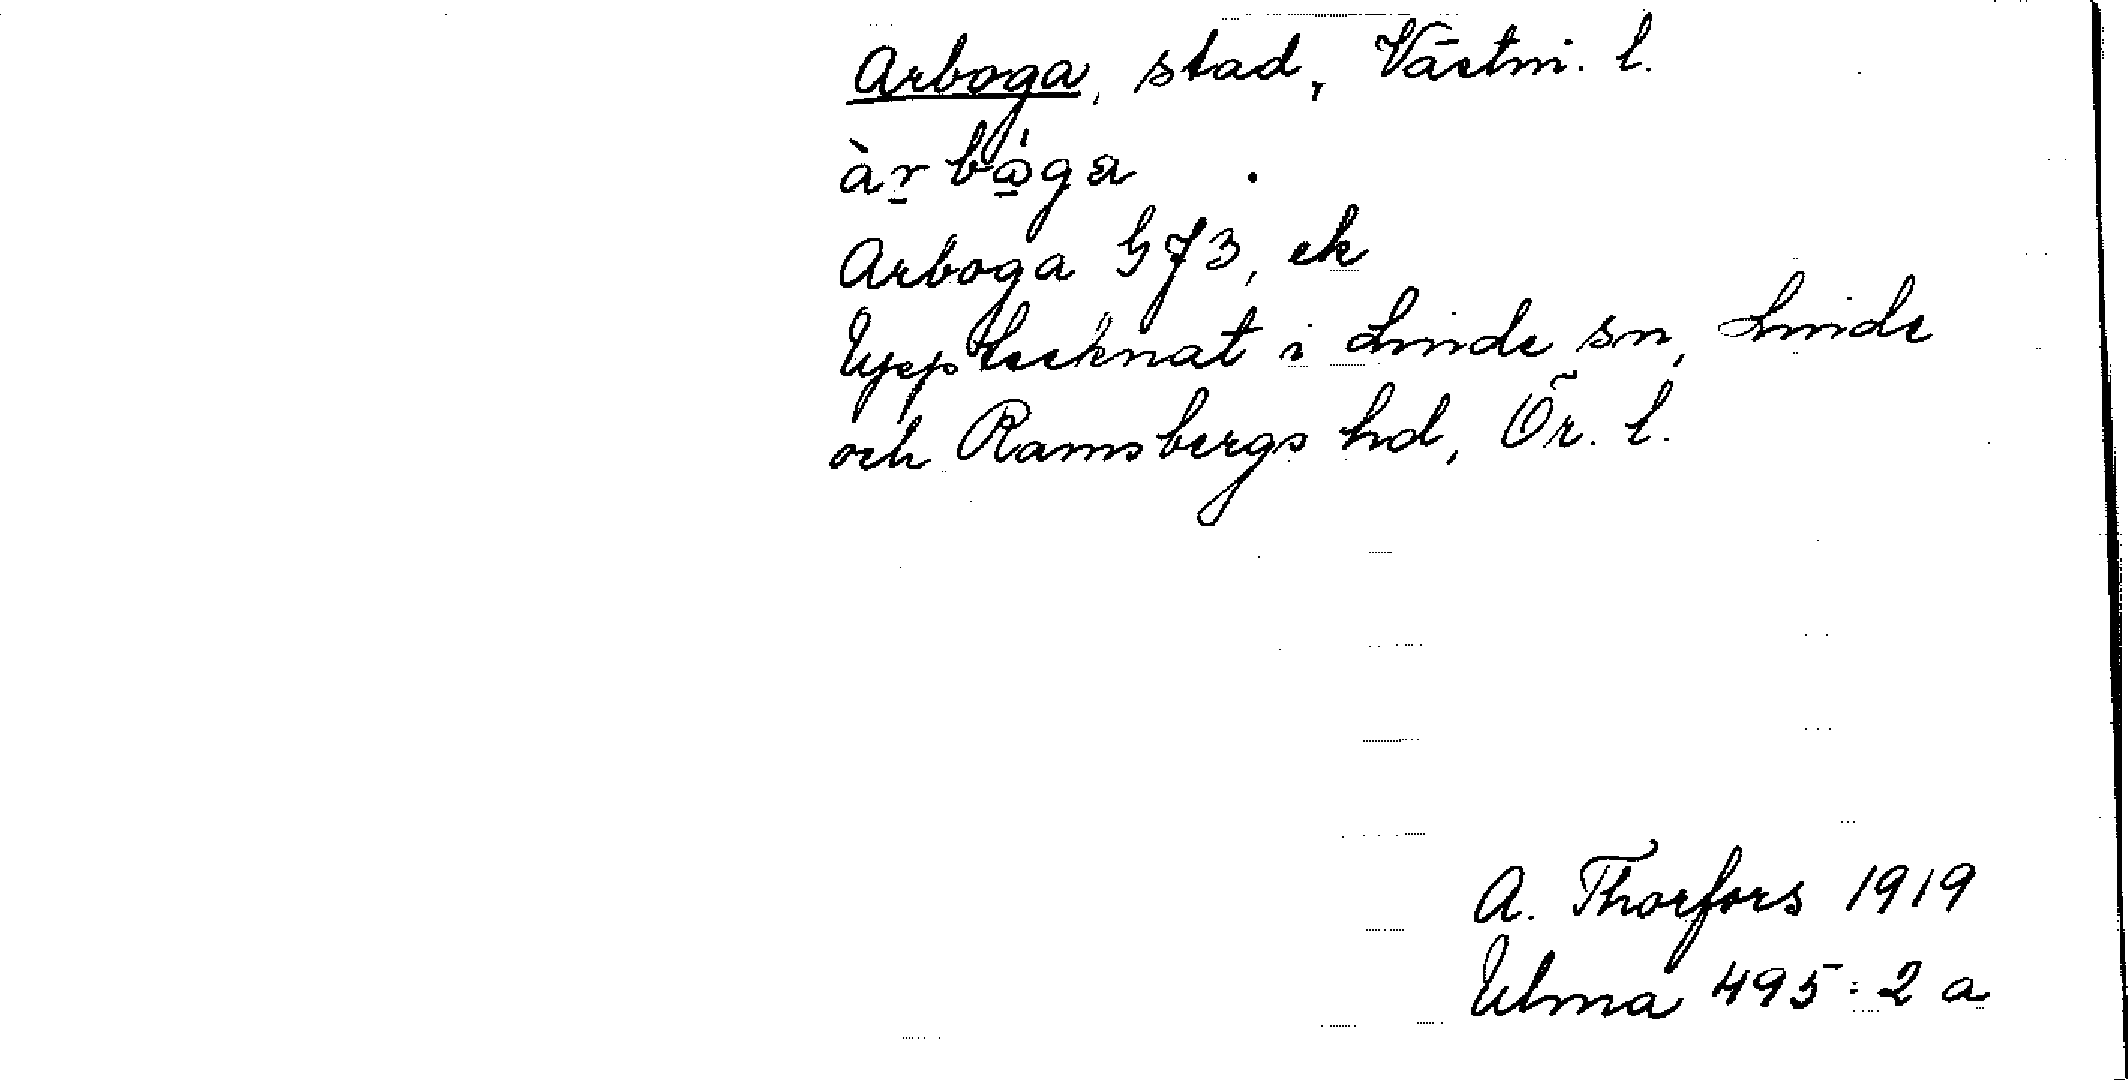 Arboga, stad, Västm. l.
àr̲bó̲ga
Arboga G73, ek
Upptecknat i Linde sn, Linde
och Ramsbergs hd, Ör. l.
A. Thorfors 1919
Ulma 495:2 a